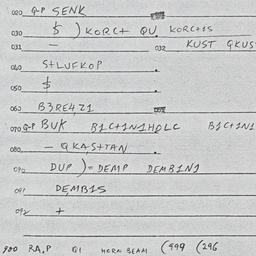 020 Q-P SENK
030 $ ) KORC+ QU KORC+1S
031 — 032 KUST QKUS
040 S+LUFKOP
050 $
060 B3RE4Z1
070 Q-P BUK B1C+1N1HOLC B1C+1N1
080 — QKAS+TAN
090 DUP )= DEMP DEMB1N1
091 DEMB1S
092 +
900 RA.P G1 HORN BEAM (499 (296